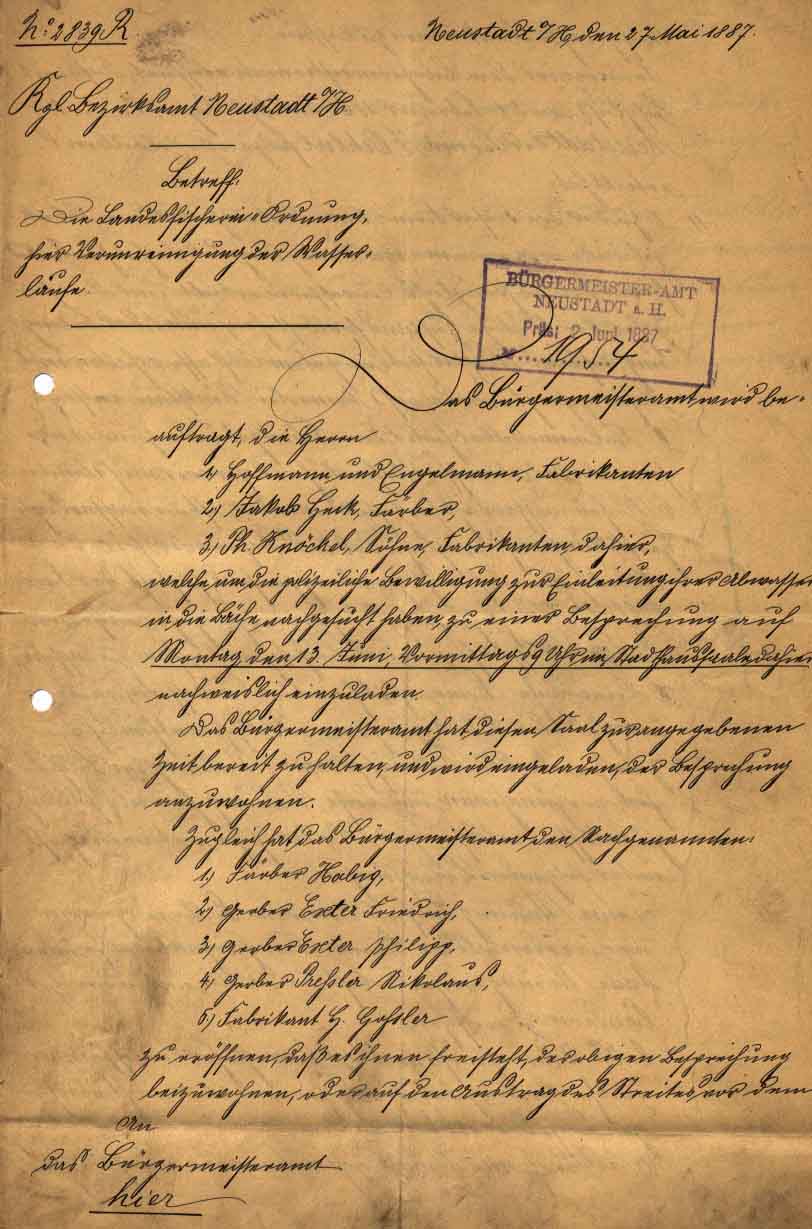 No 2839 R.
Neustadt a/H, den 27. Mai 1887.
Kgl. Bezirksamt Neustadt a/H.
Betreff:
Die Landesfischerei-Ordnung,
hier Verunreinigung der Wasser-
läufe.
BÜRGERMEISTER-AMT
NEUSTADT a. H.
Präs: 2. Juni 1887
№ 1954
Das Bürgermeisteramt wird be-
auftragt, die Herrn
1) Hoffmann und Engelmann, Fabrikanten
2) Jakob Heck, Färber,
3) Ph. Knöckel, Söhne, Fabrikanten, dahier,
welche um die polizeiliche Bewilligung zur Einleitung ihrer Abwasser
in die Bäche nachgesucht haben, zu einer Besprechung auf
Montag den 13. Juni, Vormittags 9 Uhr im Stadthaussaale dahier
nachweislich einzuladen.
Das Bürgermeisteramt hat diesen Saal zur angegebenen
Zeit bereit zu halten, und wird eingeladen, der Besprechung
anzuwohnen.
Zugleich hat das Bürgermeisteramt den Nachgenannten:
1.) Färber Habig,
2) Gerber Exter Friedrich,
3) Gerber Exter Philipp,
4) Gerber Preßler Nikolaus,
5.) Fabrikant H. Goßler
zu eröffnen, daß es ihnen freisteht, der obigen Besprechung
beizuwohnen, oder auf den Austrag des Streites vor dem
An
das Bürgermeisteramt
hier